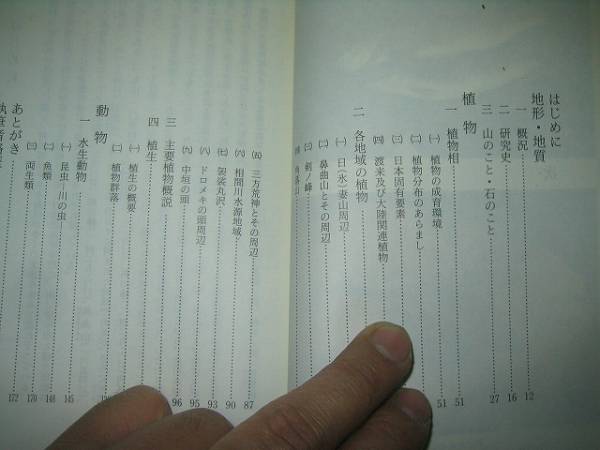 はじめに
地形・地質
一 概況 12
二 研究史 16
三 山のこと・石のこと 27
植物
一 植物相 51
㈠ 植物の成育環境 51
㈡ 植物分布のあらまし
㈢ 日本固有要素
㈣ 渡来及び大陸関連植物
二 各地域の植物
㈠ 日(氷)妻山周辺
㈡ 鼻曲山とその周辺
㈢ 剣ノ峰
㈤ 三方荒神とその周辺 87
㈥ 相間川水源地域 90
㈦ 袈裟丸沢 93
㈧ ドロメキの頭周辺 95
㈨ 中垣の頭 96
三 主要植物概説
四 植生
㈠ 植生の概要
㈡ 植物群落
動物
一 水生動物
㈠ 昆虫―川の虫 145
㈡ 魚類 168
㈢ 両生類 170
あとがき 172